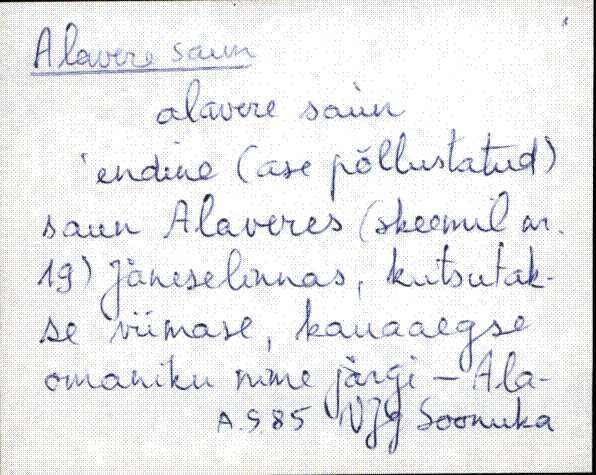 Alavere saun
alavere saùn
'endine (ase põllustatud)
saun Alaveres (skeemil nr.
19) Jäneselinnas, kutsutak-
se viimase, kauaaegse
omaniku nime järgi – Ala-
A.S.85 VJg Soonuka